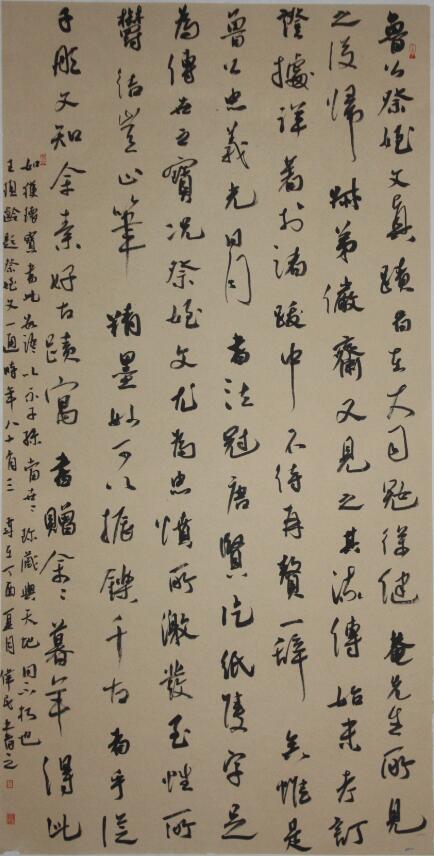 鲁公祭姪文真蹟昔在大司寇徐健菴先生所見
之後歸 弟儼齋又見之其流傳始末考訂
證據詳著於諸跋中不待再贅一辭矣惟是
魯公忠義光日月書法冠唐賢片紙隻字足
為傳世之寶况祭姪文尤為忠憤所激發至性所
鬱结豈止筆精墨妙可以振鑠千古者乎從
子彤文知余素好古蹟寫書贈余〻暮年得此
如獲揣寳書此數語以示子孫當世〻珍藏與天地同不朽也
王頊齡題祭姪文一通時年八十有三 歲在丁酉夏月偉民書之